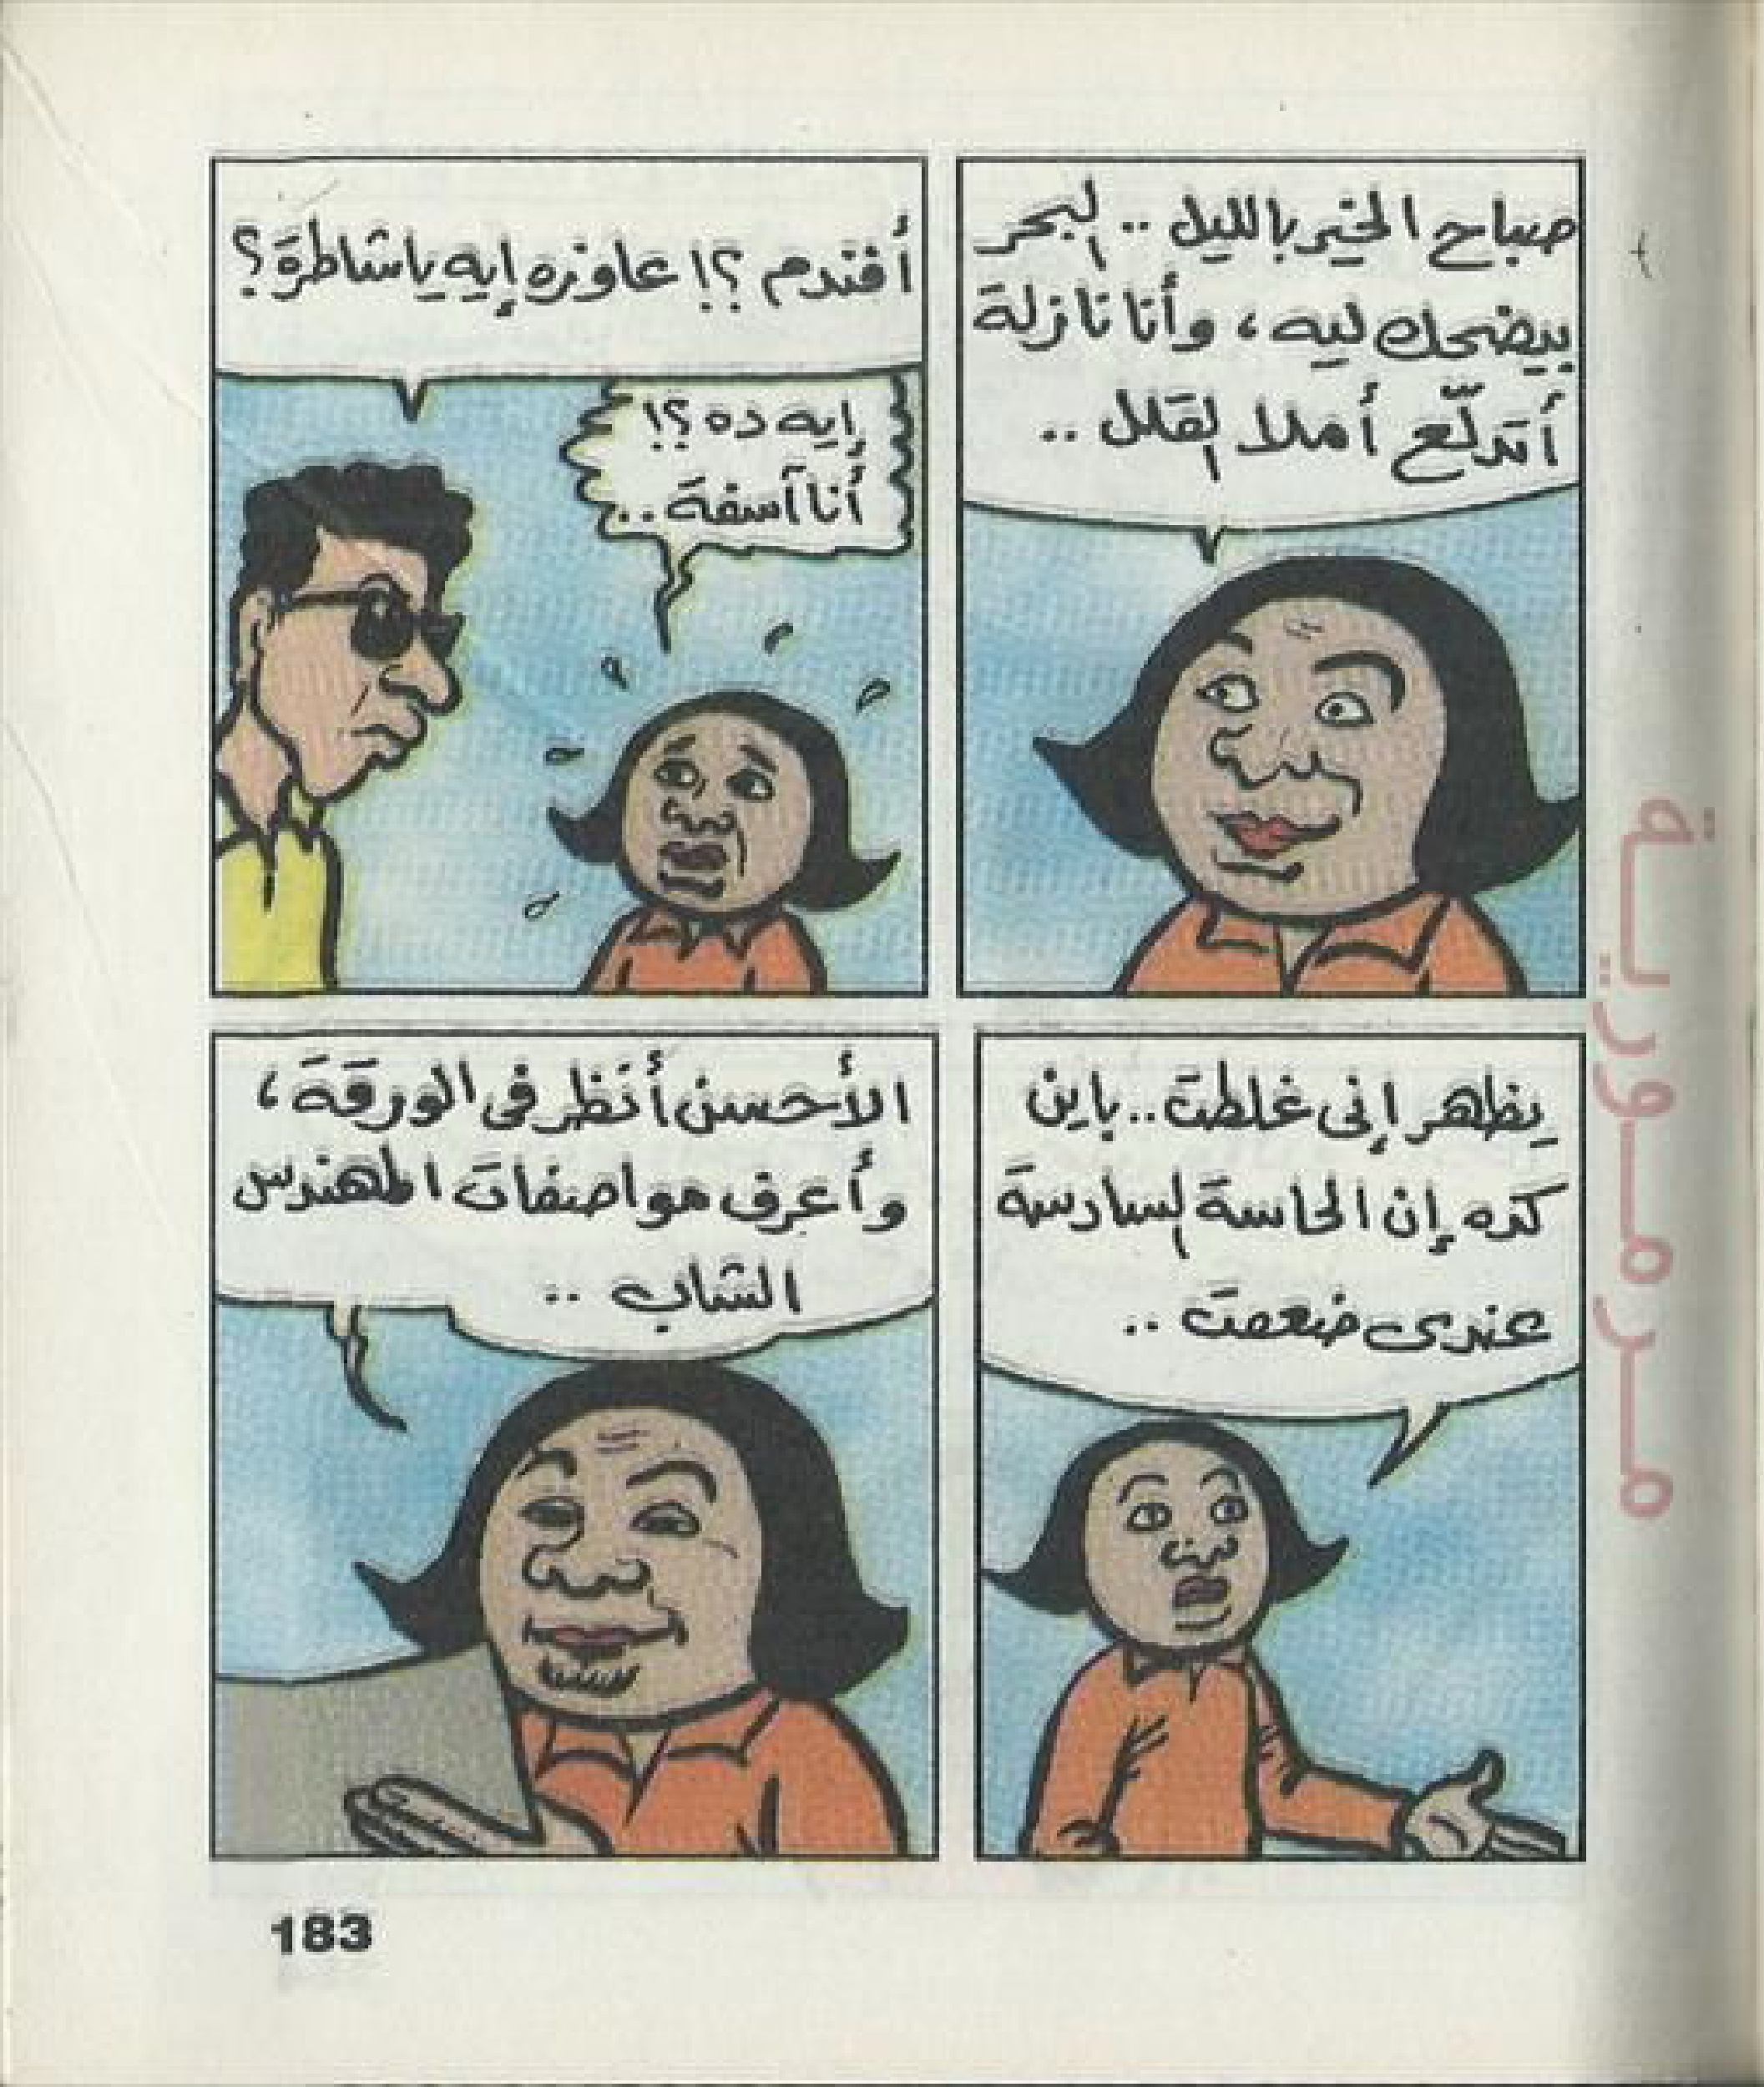 صباح الخير بالليل .. البحر
بيضحك ليه ، وأنا نازلة
أتدلّع أملا القلل ..
أفندم ؟! عاوزه إيه ياشاطرة ؟
إيه ده ؟!
أنا آسفة ..
يظهر إنى غلطت .. باين
كده إن الحاسة السادسة
عندى ضعفت ..
الأحسن أنظر فى الورقة ،
وأعرف مواصفات المهندس
الشاب ..
مرمورية
183